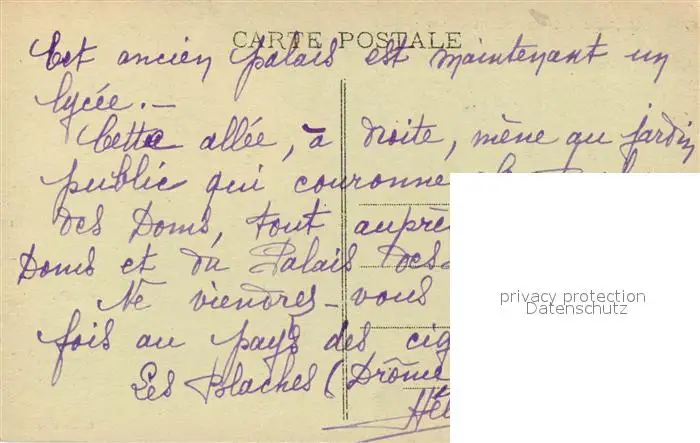 CARTE POSTALE
Cet ancien palais est maintenant un
lycée.-
Cette allée, à droite, mène au jardin
public qui couronne
des Doms, tout auprès
Doms et du Palais des
Ne viendres-vous
fois au pays des cig
Les Blaches (Drôme
Hél
privacy protection
Datenschutz